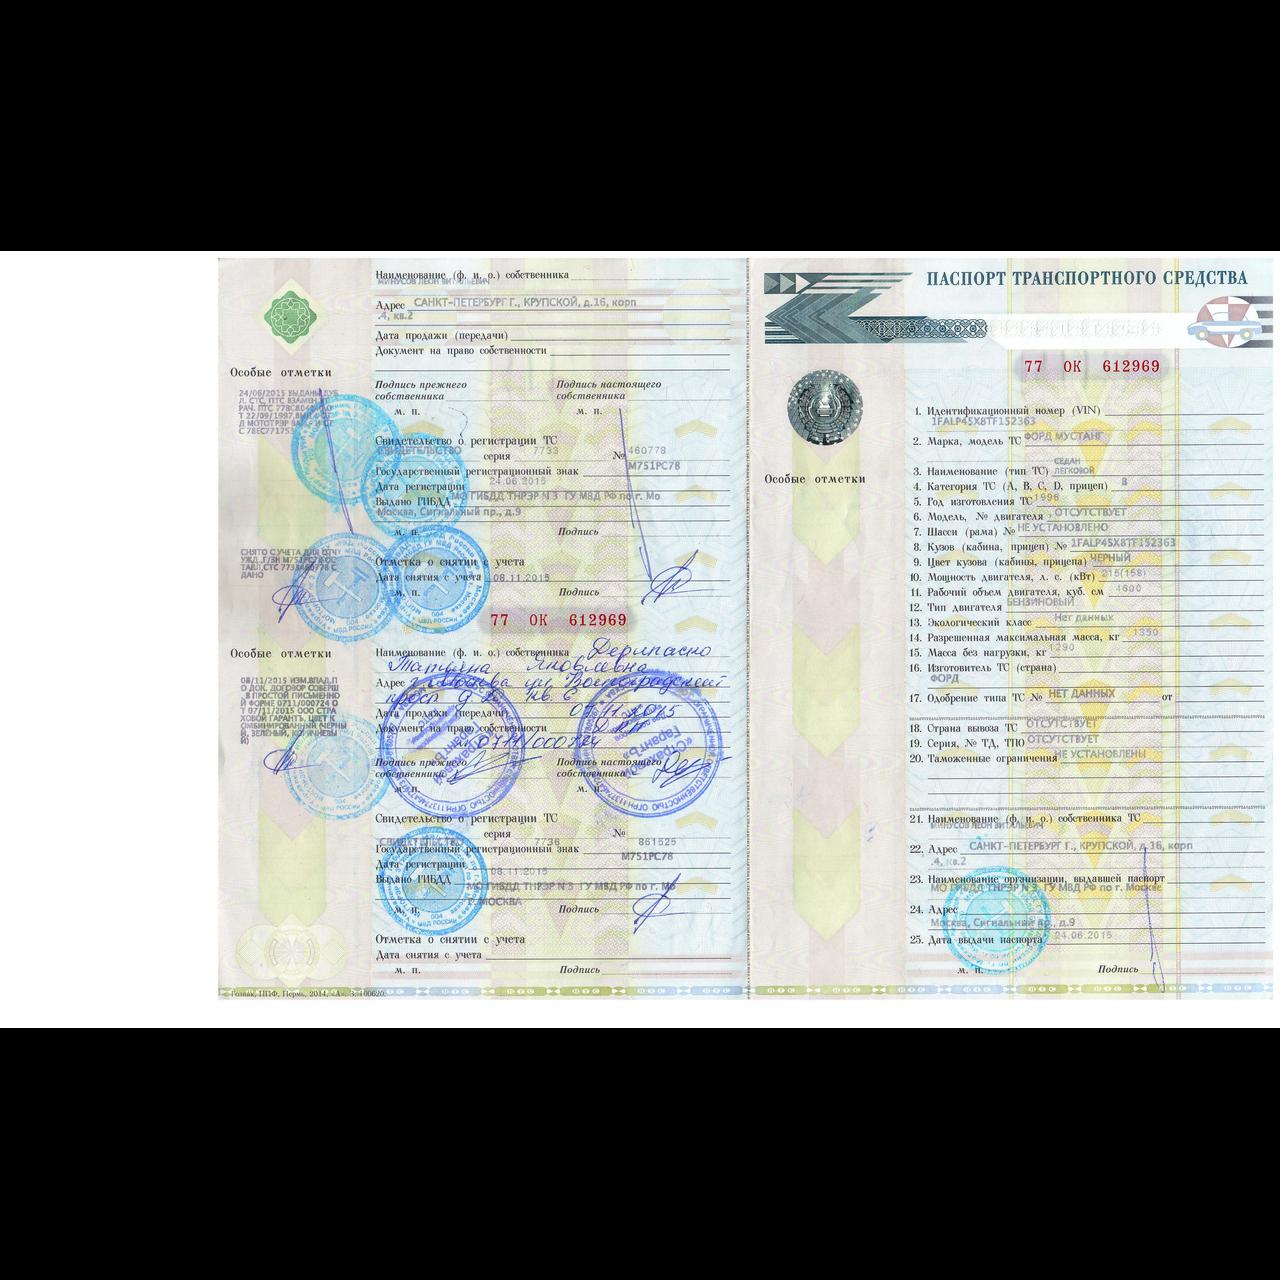 Наименование (ф. и. о.) собственника
МИНУСОВ ЛЕОН ВИТАЛЬЕВИЧ
Адрес САНКТ-ПЕТЕРБУРГ Г., КРУПСКОЙ, д.16, корп
.4, кв.2
Дата продажи (передачи)
Документ на право собственности
Особые отметки
24/06/2015 ВЫДАН ДУБ
Подпись прежнего собственника
Подпись настоящего собственника
м. п. м. п.
Свидетельство о регистрации ТС
СВИДЕТЕЛЬСТВО серия 7733 № 460778
Государственный регистрационный знак М751РС78
Дата регистрации 24.06.2015
Выдано ГИБДД МО ГИБДД ТНРЭР N 3 ГУ МВД РФ по г. Мо
Москва, Сигнальный пр., д.9
м. п. Подпись
СНЯТО С УЧЕТА ДЛЯ ОТЧ
Отметка о снятии с учета
Дата снятия с учета 08.11.2015
м. п. Подпись
77 ОК 612969
Особые отметки
08/11/2015 ИЗМ.ВЛАД.П
О ДОК. ДОГОВОР СОВЕРШ
. В ПРОСТОЙ ПИСЬМЕННО
Й ФОРМЕ 0711/000724 О
Т 07/11/2015 ООО СТРА
ХОВОЙ ГАРАНТЪ, ЦВЕТ К
ОМБИНИРОВАННЫЙ (ЧЕРНЫ
Й, ЗЕЛЕНЫЙ, КОРИЧНЕВЫ
Й)
Наименование (ф. и. о.) собственника
Татьяна Яковлевна
Адрес г. Москва Волгоградский
Дата продажи (передачи) 07.11.2015
Документ на право собственности ДКП
0711/000724
Подпись прежнего собственника
Подпись настоящего собственника
м. п. м. п.
Свидетельство о регистрации ТС
СВИДЕТЕЛЬСТВО серия 7736 № 861525
Государственный регистрационный знак М751РС78
Дата регистрации 08.11.2015
Выдано ГИБДД МО ГИБДД ТНРЭР N 3 ГУ МВД РФ по г. Мо
Г. МОСКВА
м. п. Подпись
Отметка о снятии с учета
Дата снятия с учета
м. п. Подпись
ПАСПОРТ ТРАНСПОРТНОГО СРЕДСТВА
77 ОК 612969
Особые отметки
1. Идентификационный номер (VIN)
1FALP45X8TF152363
2. Марка, модель ТС ФОРД МУСТАНГ
СЕДАН
3. Наименование (тип ТС) ЛЕГКОВОЙ
4. Категория ТС (A, B, C, D, прицеп) В
5. Год изготовления ТС 1996
6. Модель, № двигателя ОТСУТСТВУЕТ
7. Шасси (рама) № НЕ УСТАНОВЛЕНО
8. Кузов (кабина, прицеп) № 1FALP45X8TF152363
9. Цвет кузова (кабины, прицепа) ЧЕРНЫЙ
10. Мощность двигателя, л. с. (кВт) 215(158)
11. Рабочий объем двигателя, куб. см 4600
12. Тип двигателя БЕНЗИНОВЫЙ
13. Экологический класс Нет данных
14. Разрешенная максимальная масса, кг 1350
15. Масса без нагрузки, кг 1290
16. Изготовитель ТС (страна)
ФОРД
17. Одобрение типа ТС № НЕТ ДАННЫХ от
18. Страна вывоза ТС ОТСУТСТВУЕТ
19. Серия, № ТД, ТПО ОТСУТСТВУЕТ
20. Таможенные ограничения НЕ УСТАНОВЛЕНЫ
21. Наименование (ф. и. о.) собственника ТС
МИНУСОВ ЛЕОН ВИТАЛЬЕВИЧ
22. Адрес САНКТ-ПЕТЕРБУРГ Г., КРУПСКОЙ, д.16, корп
.4, кв.2
23. Наименование организации, выдавшей паспорт
МО ГИБДД ТНРЭР N 3 ГУ МВД РФ по г. Москве
24. Адрес
Москва, Сигнальный пр., д.9
25. Дата выдачи паспорта 24.06.2015
м. п. Подпись